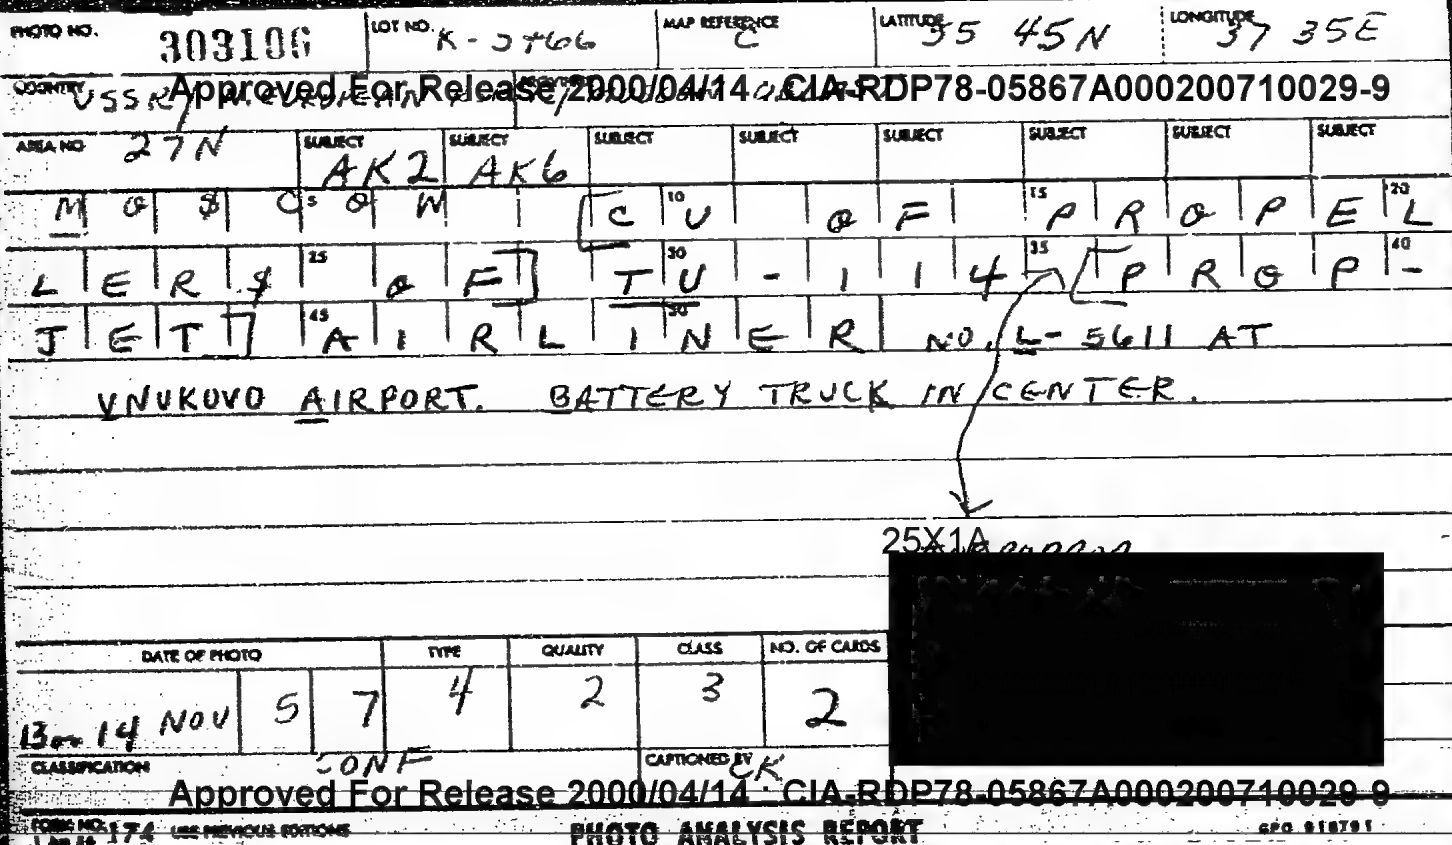 PHOTO NO. 303106 LOT NO. K-3466 MAP REFERENCE C LATITUDE 55 45N LONGITUDE 37 35E
COUNTRY USSR
Approved For Release 2000/04/14 : CIA-RDP78-05867A000200710029-9
AREA NO. 27N SUBJECT AK2 SUBJECT AK6 SUBJECT SUBJECT SUBJECT SUBJECT SUBJECT SUBJECT
MOSCOW [CU OF PROPEL
LERS OF] TU-114 [PROP-
JET] AIRLINER NO. L-5611 AT
VNUKOVO AIRPORT. BATTERY TRUCK IN CENTER.
25X1A
DATE OF PHOTO TYPE QUALITY CLASS NO. OF CARDS
13 or 14 NOV 5 7 4 2 3 2
CLASSIFICATION CONF CAPTIONED BY CK
Approved For Release 2000/04/14 : CIA-RDP78-05867A000200710029-9
FORM NO. 174 USE PREVIOUS EDITIONS PHOTO ANALYSIS REPORT GPO 918791